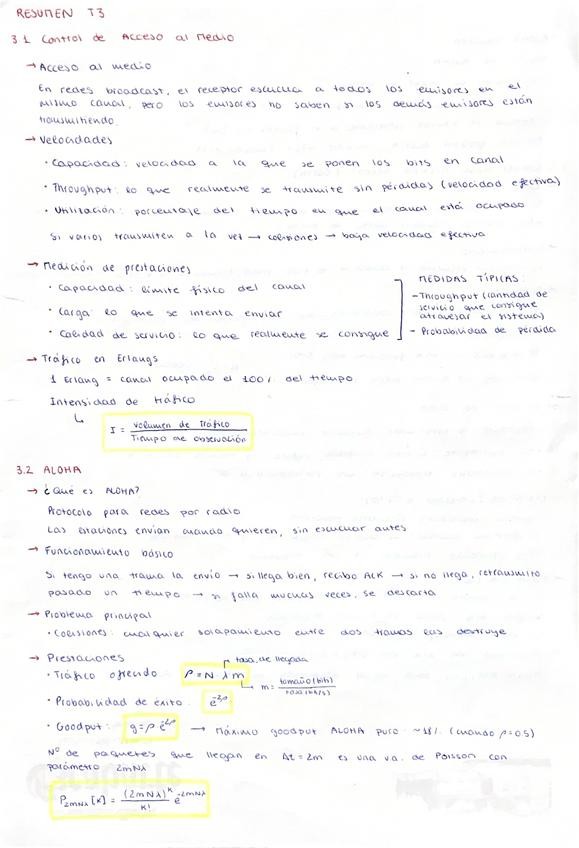 RESUMEN T3
3.1 Control de Acceso al Medio
→ Acceso al medio
En redes broadcast, el receptor escucha a todos los emisores en el
mismo canal, pero los emisores no saben si los demás emisores están
transmitiendo.
→ Velocidades
· Capacidad: velocidad a la que se ponen los bits en canal
· Throughput: lo que realmente se transmite sin pérdidas (velocidad efectiva)
· Utilización: porcentaje del tiempo en que el canal está ocupado
Si varios transmiten a la vez → colisiones → baja velocidad efectiva
→ Medición de prestaciones
· Capacidad: límite físico del canal
· Carga: lo que se intenta enviar
· Calidad de servicio: lo que realmente se consigue
MEDIDAS TÍPICAS:
- Throughput (cantidad de
servicio que consigue
atravesar el sistema)
- Probabilidad de pérdida
→ Tráfico en Erlangs
1 Erlang = canal ocupado el 100% del tiempo
Intensidad de tráfico
↳ I = Volumen de Tráfico / Tiempo de observación
3.2 ALOHA
→ ¿Qué es ALOHA?
Protocolo para redes por radio
Las estaciones envían cuando quieren, sin escuchar antes
→ Funcionamiento básico
Si tengo una trama la envío → si llega bien, recibo ACK → si no llega, retransmito
pasado un tiempo → si falla muchas veces, se descarta
→ Problema principal
· Colisiones: cualquier solapamiento entre dos tramas las destruye
→ Prestaciones
· Tráfico ofrecido: ρ = N λ m
→ tasa de llegada
→ m = tamaño (bits) / tasa (bit/s)
· Probabilidad de éxito: e^-2ρ
· Goodput: g = ρ e^-2ρ → Máximo goodput ALOHA puro: ~18% (cuando ρ=0.5)
Nº de paquetes que llegan en Δt = 2m es una v.a. de Poisson con
parámetro 2mNλ
P_2mNλ [K] = (2mNλ)^K / K! e^-2mNλ